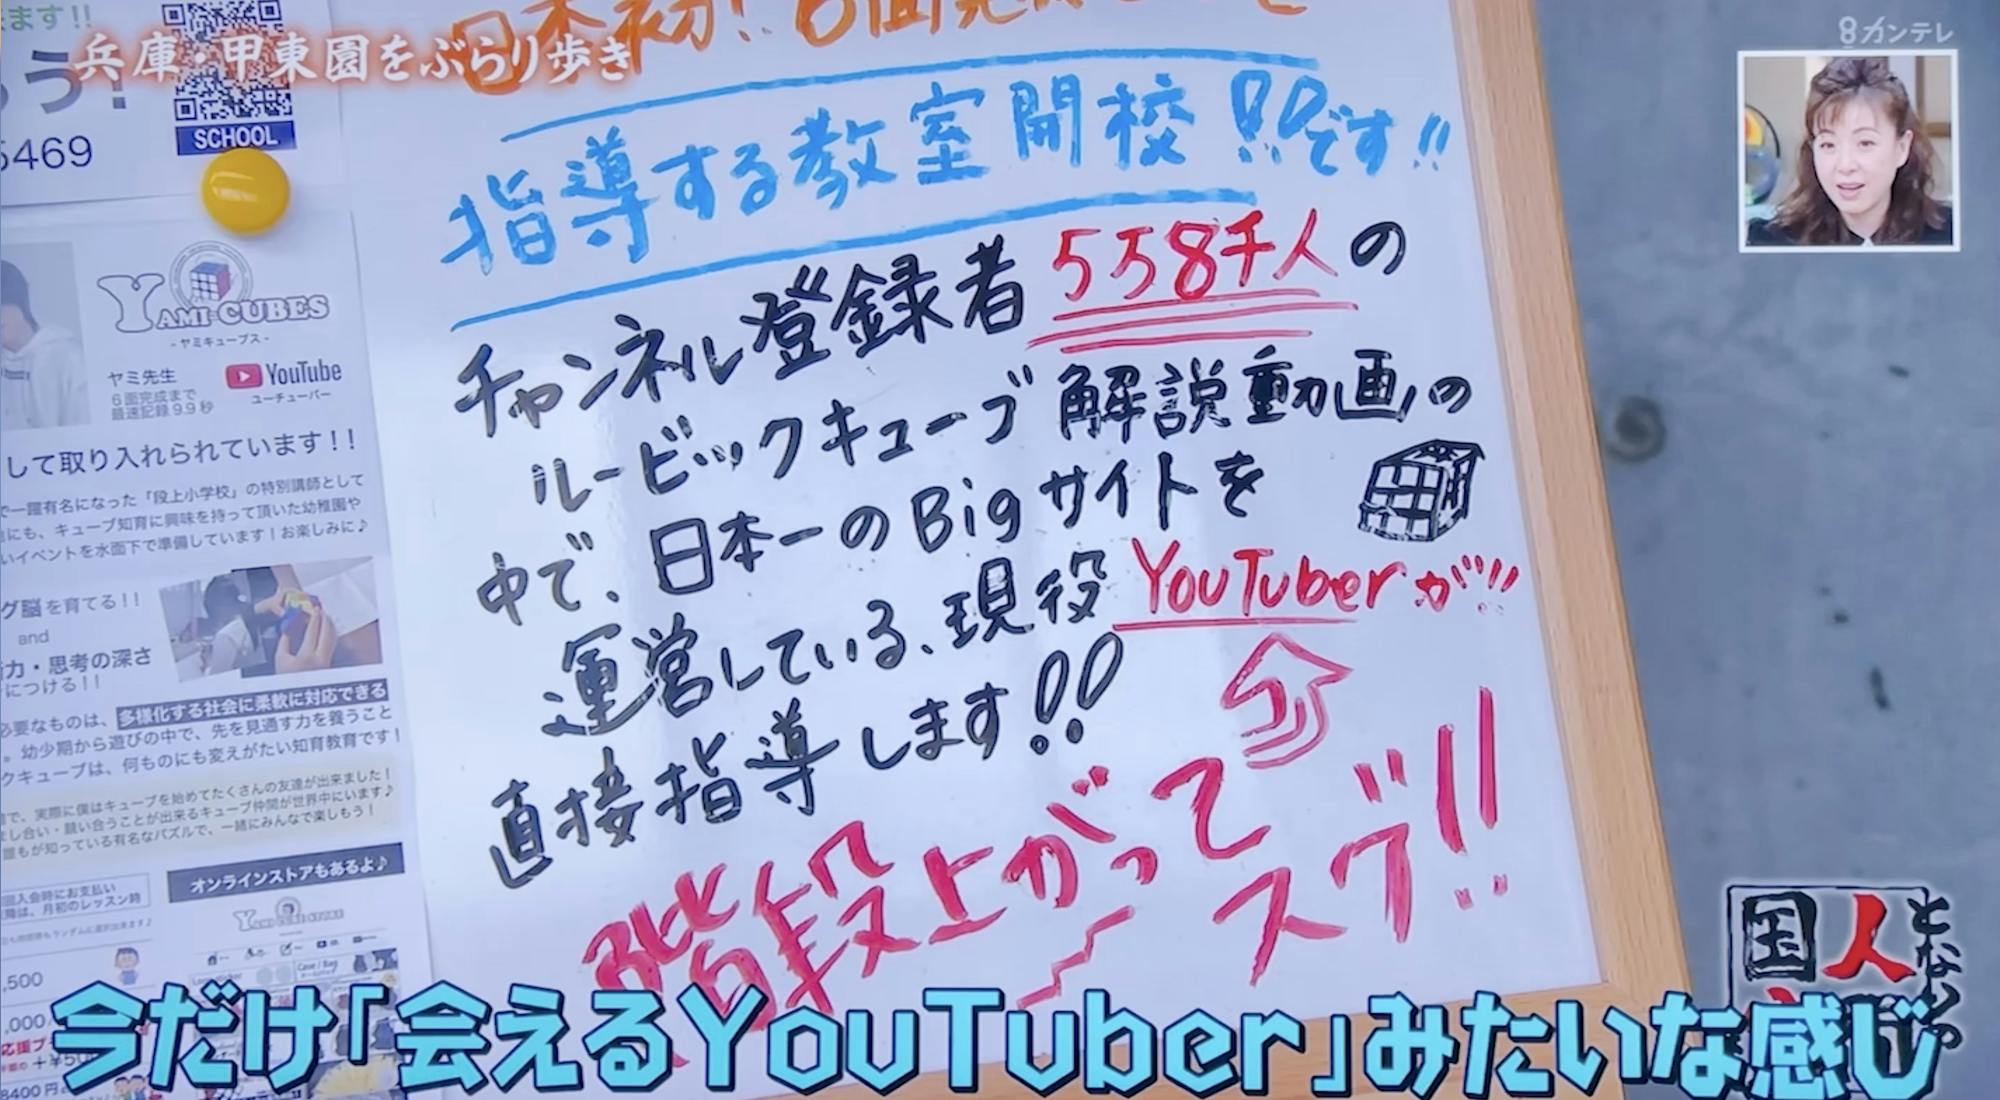 兵庫・甲東園をぶらり歩き
カンテレ
ます!!
う!
5469
SCHOOL
YAMI CUBES
- ヤミキューブス -
ヤミ先生
6面完成まで
最速記録9.9秒
YouTube
ユーチューバー
して取り入れられています!!
で一躍有名になった「段上小学校」の特別講師として
にも、キューブ知育に興味を持って頂いた幼稚園や
いイベントを水面下で準備しています!お楽しみに♪
グ脳を育てる!!
and
力・思考の深さ
につける!!
必要なものは、多様化する社会に柔軟に対応できる
。幼少期から遊びの中で、先を見通す力を養うこと
クキューブは、何ものにも変えがたい知育教育です!
で、実際に僕はキューブを始めてたくさんの友達が出来ました!
まし合い・競い合うことが出来るキューブ仲間が世界中にいます♪
誰もが知っている有名なパズルで、一緒にみんなで楽しもう!
回入会時にお支払い
降は、月初のレッスン時
,500
,000
オンラインストアもあるよ♪
Case / Bag
8400円
日本初!6面完成
指導する教室開校!!です!!
チャンネル登録者558千人の
ルービックキューブ解説動画の
中で、日本一のBigサイトを
運営している、現役YouTuberが!!
直接指導します!!
階段上がってスグ!!
となりの
人
国
今だけ「会えるYouTuber」みたいな感じ